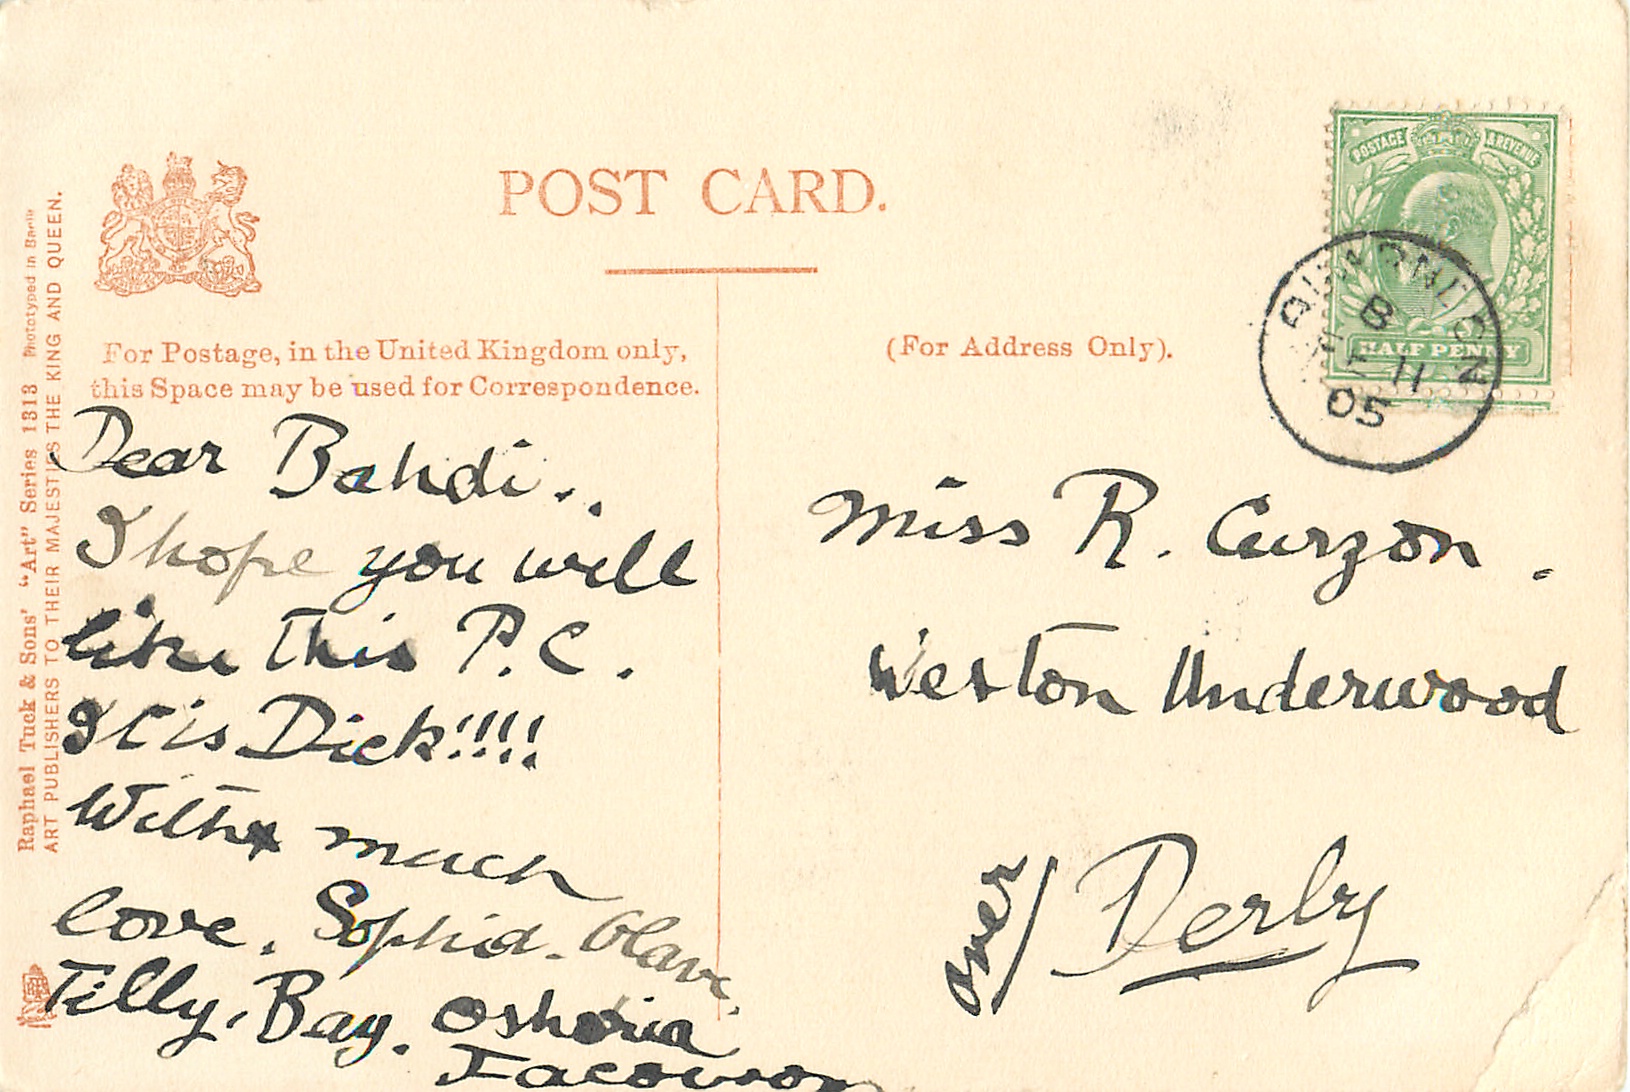 POST CARD.
For Postage, in the United Kingdom only,
this Space may be used for Correspondence.
(For Address Only).
Raphael Tuck & Sons' "Art" Series 1313 Phototyped in Berlin
ART PUBLISHERS TO THEIR MAJESTIES THE KING AND QUEEN.
POSTAGE & REVENUE
HALF PENNY
B
FE 11
05
Dear Bahdi..
I hope you will
like this P.C.
It is Dick!!!!
With much
love. Sophia. Olave
Tilly. Bay.
Miss R. Curzon.
Weston Underwood
Derby
over/